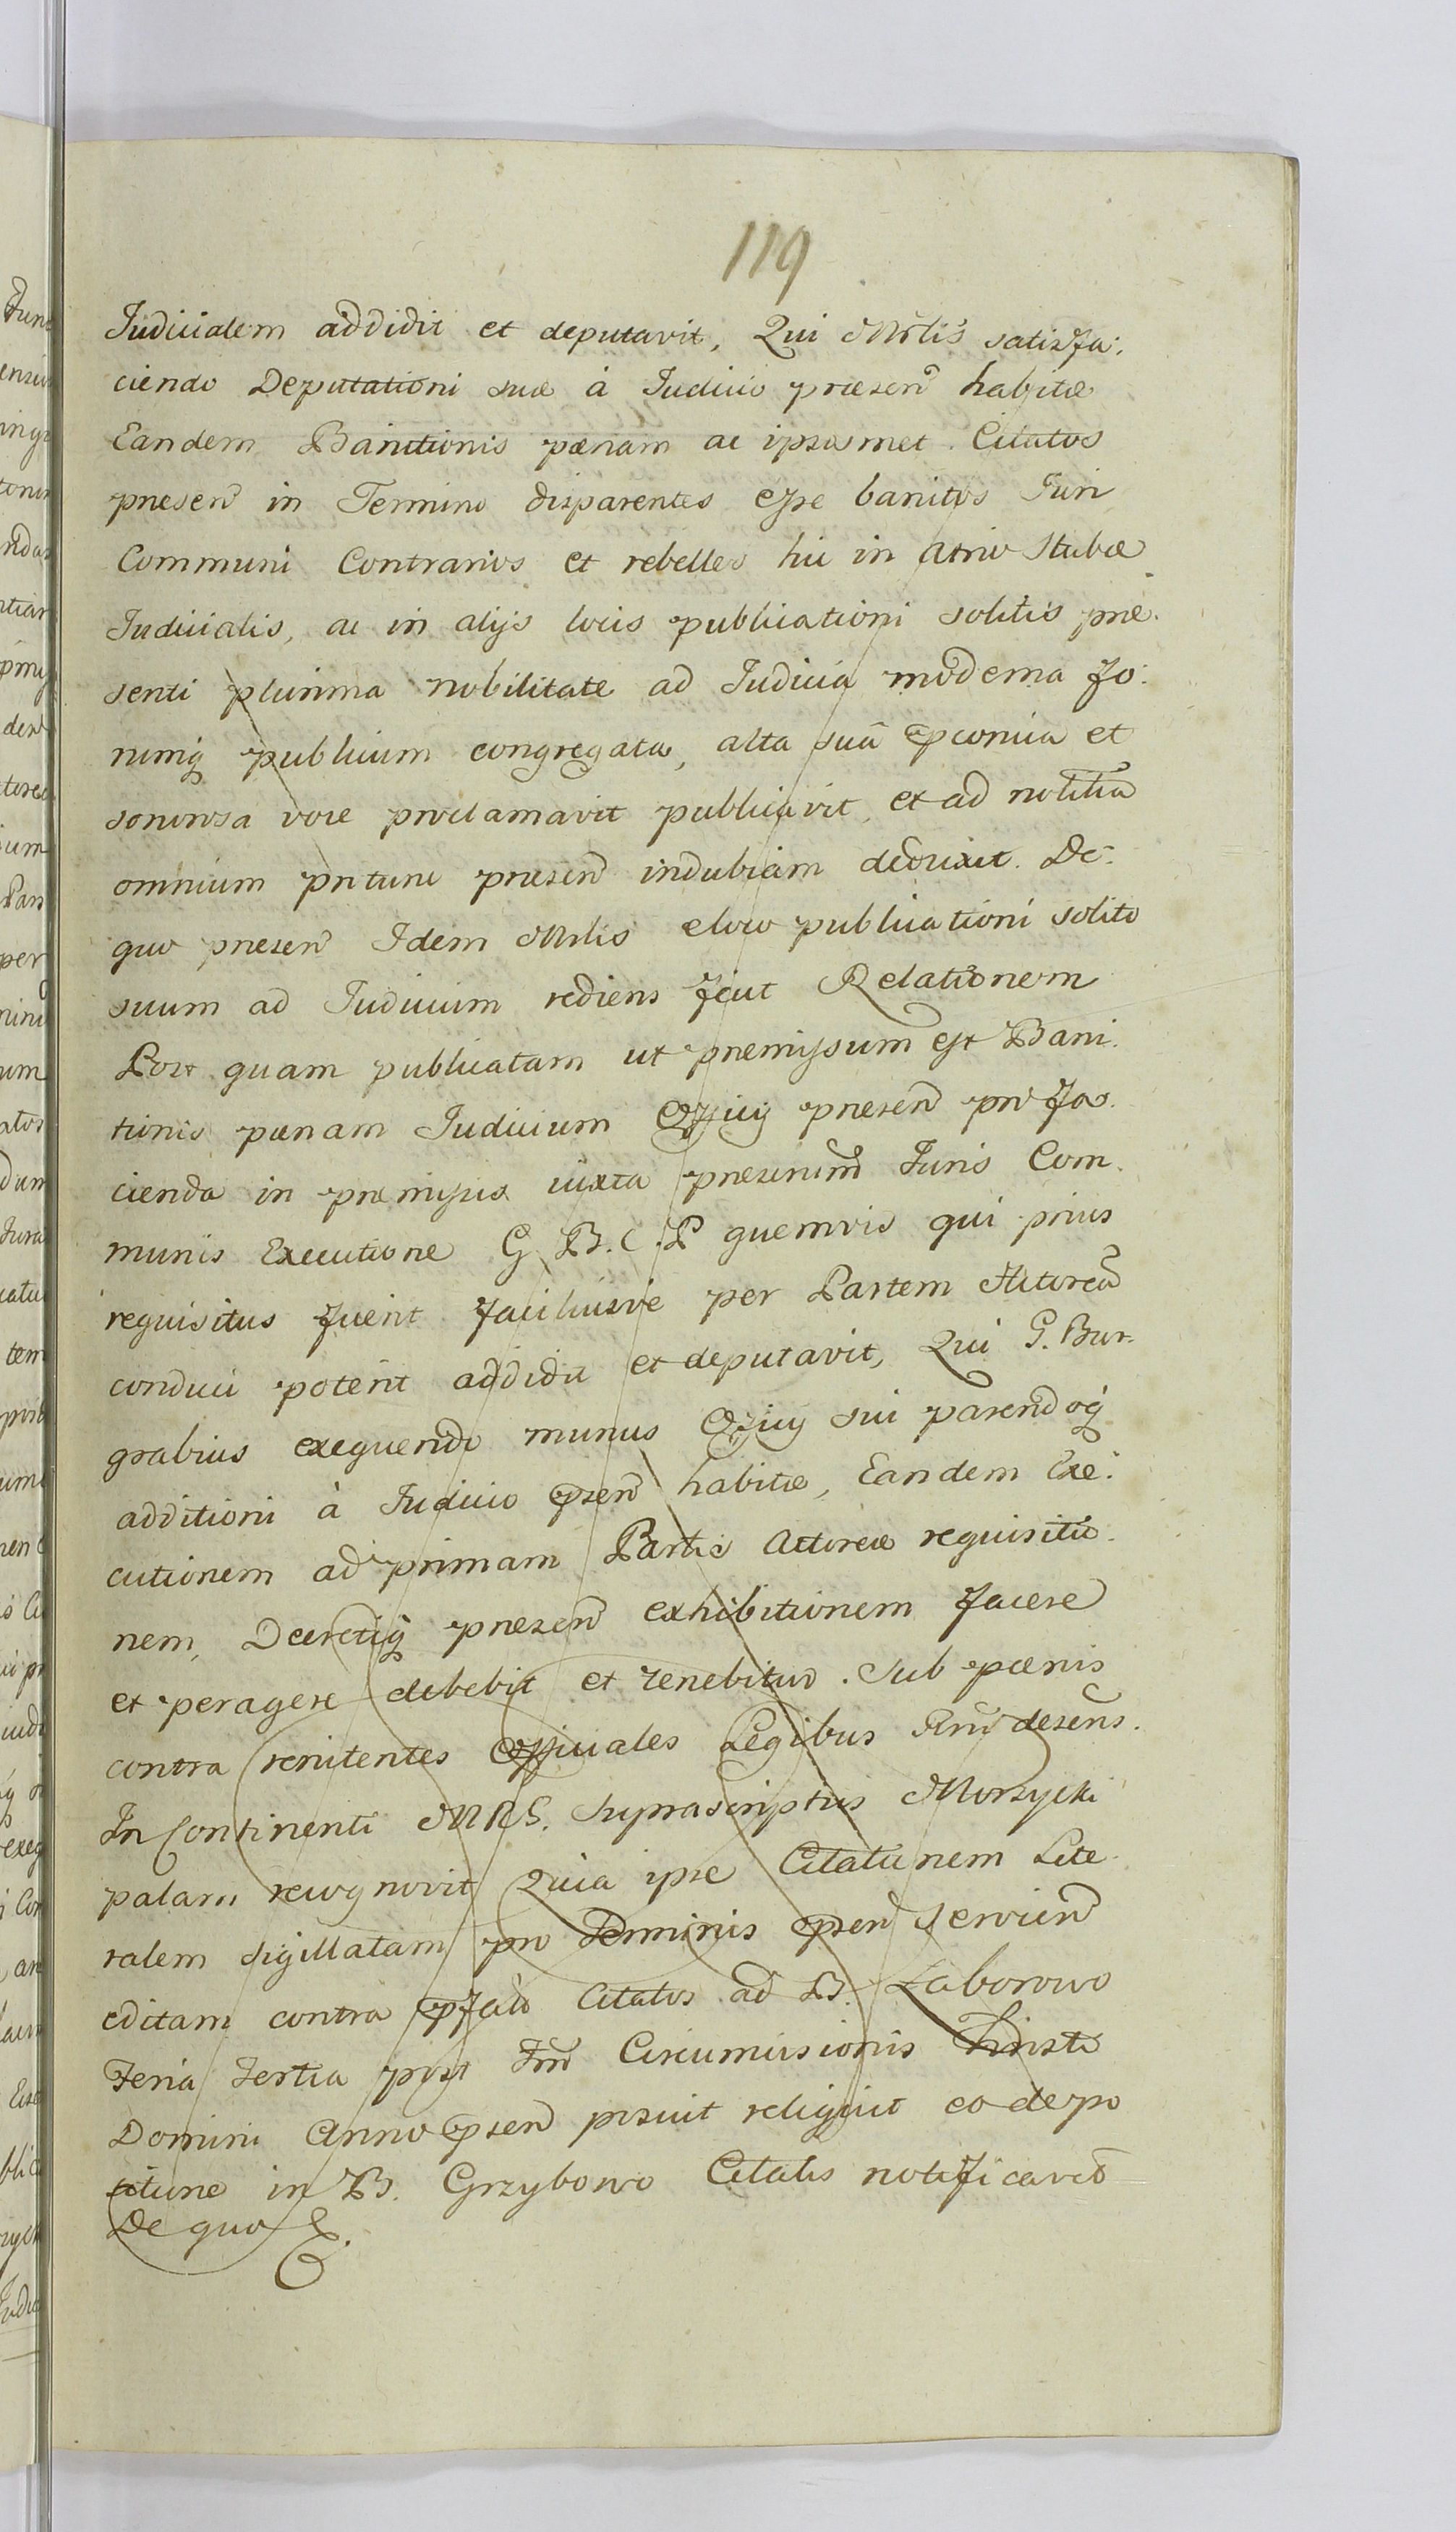 119
Judicialem addidit et deputavit, Qui Mrlis satisfa:
ciendo Deputationi suæ à Judicio præsen habitæ
Eandem Banitionis pænam ac ipsosmet Citatos
præsen in Termino disparentes esse banitos Juri
Communi Contrarios et rebelles hic in atrio Stubæ
Judicialis, ac in alijs locis publicationi solitis præ-
senti plurima nobilitate ad Judicia moderna fo:
rumq publicum congregata, alta suâ epconica et
sonorosa voce proclamavit publicavit, et ad notitiã
omnium pro tunc præsen indubiam deduxit. De
quo præsen Idem Mrlis eloco publicationi solito
suum ad Judicium rediens fecit Relationem
Post quam publicatam ut præmissum est Bani-
tionis pænam Judicium Officij præsen pro fa-
cienda in præmissis iuxta præsenum Juris Com-
munis Executione G. B. C. P quemvis qui prius
requisitus fuerit faciliusve per Partem Actoreã
conduci poterit addidit et deputavit, Qui G. Bur-
grabius exequendo munus Officij sui parendoq
additioni à Judicio præsen habitæ, Eandem Exe-
cutionem ad primam Partis Actoreæ requisitio-
nem, Decretiq præsen exhibitionem facere
et peragere debebit et tenebitur. Sub pænis
contra renitentes Officiales Legibus Rni desens.
In Continenti MRG. Suprascriptus Morzycki
palam recognovit Quia ipse Citationem Lite-
ralem sigillatam pro Terminis præsen servien
editam contra epfatos Citatos ad B. Zaborowo
Feria Tertia post Fm Circumcisionis Christi
Domini Anno præsen posuit reliquit eo depo
sitione in B. Grzybowo Citatis notificavit
De quo &.